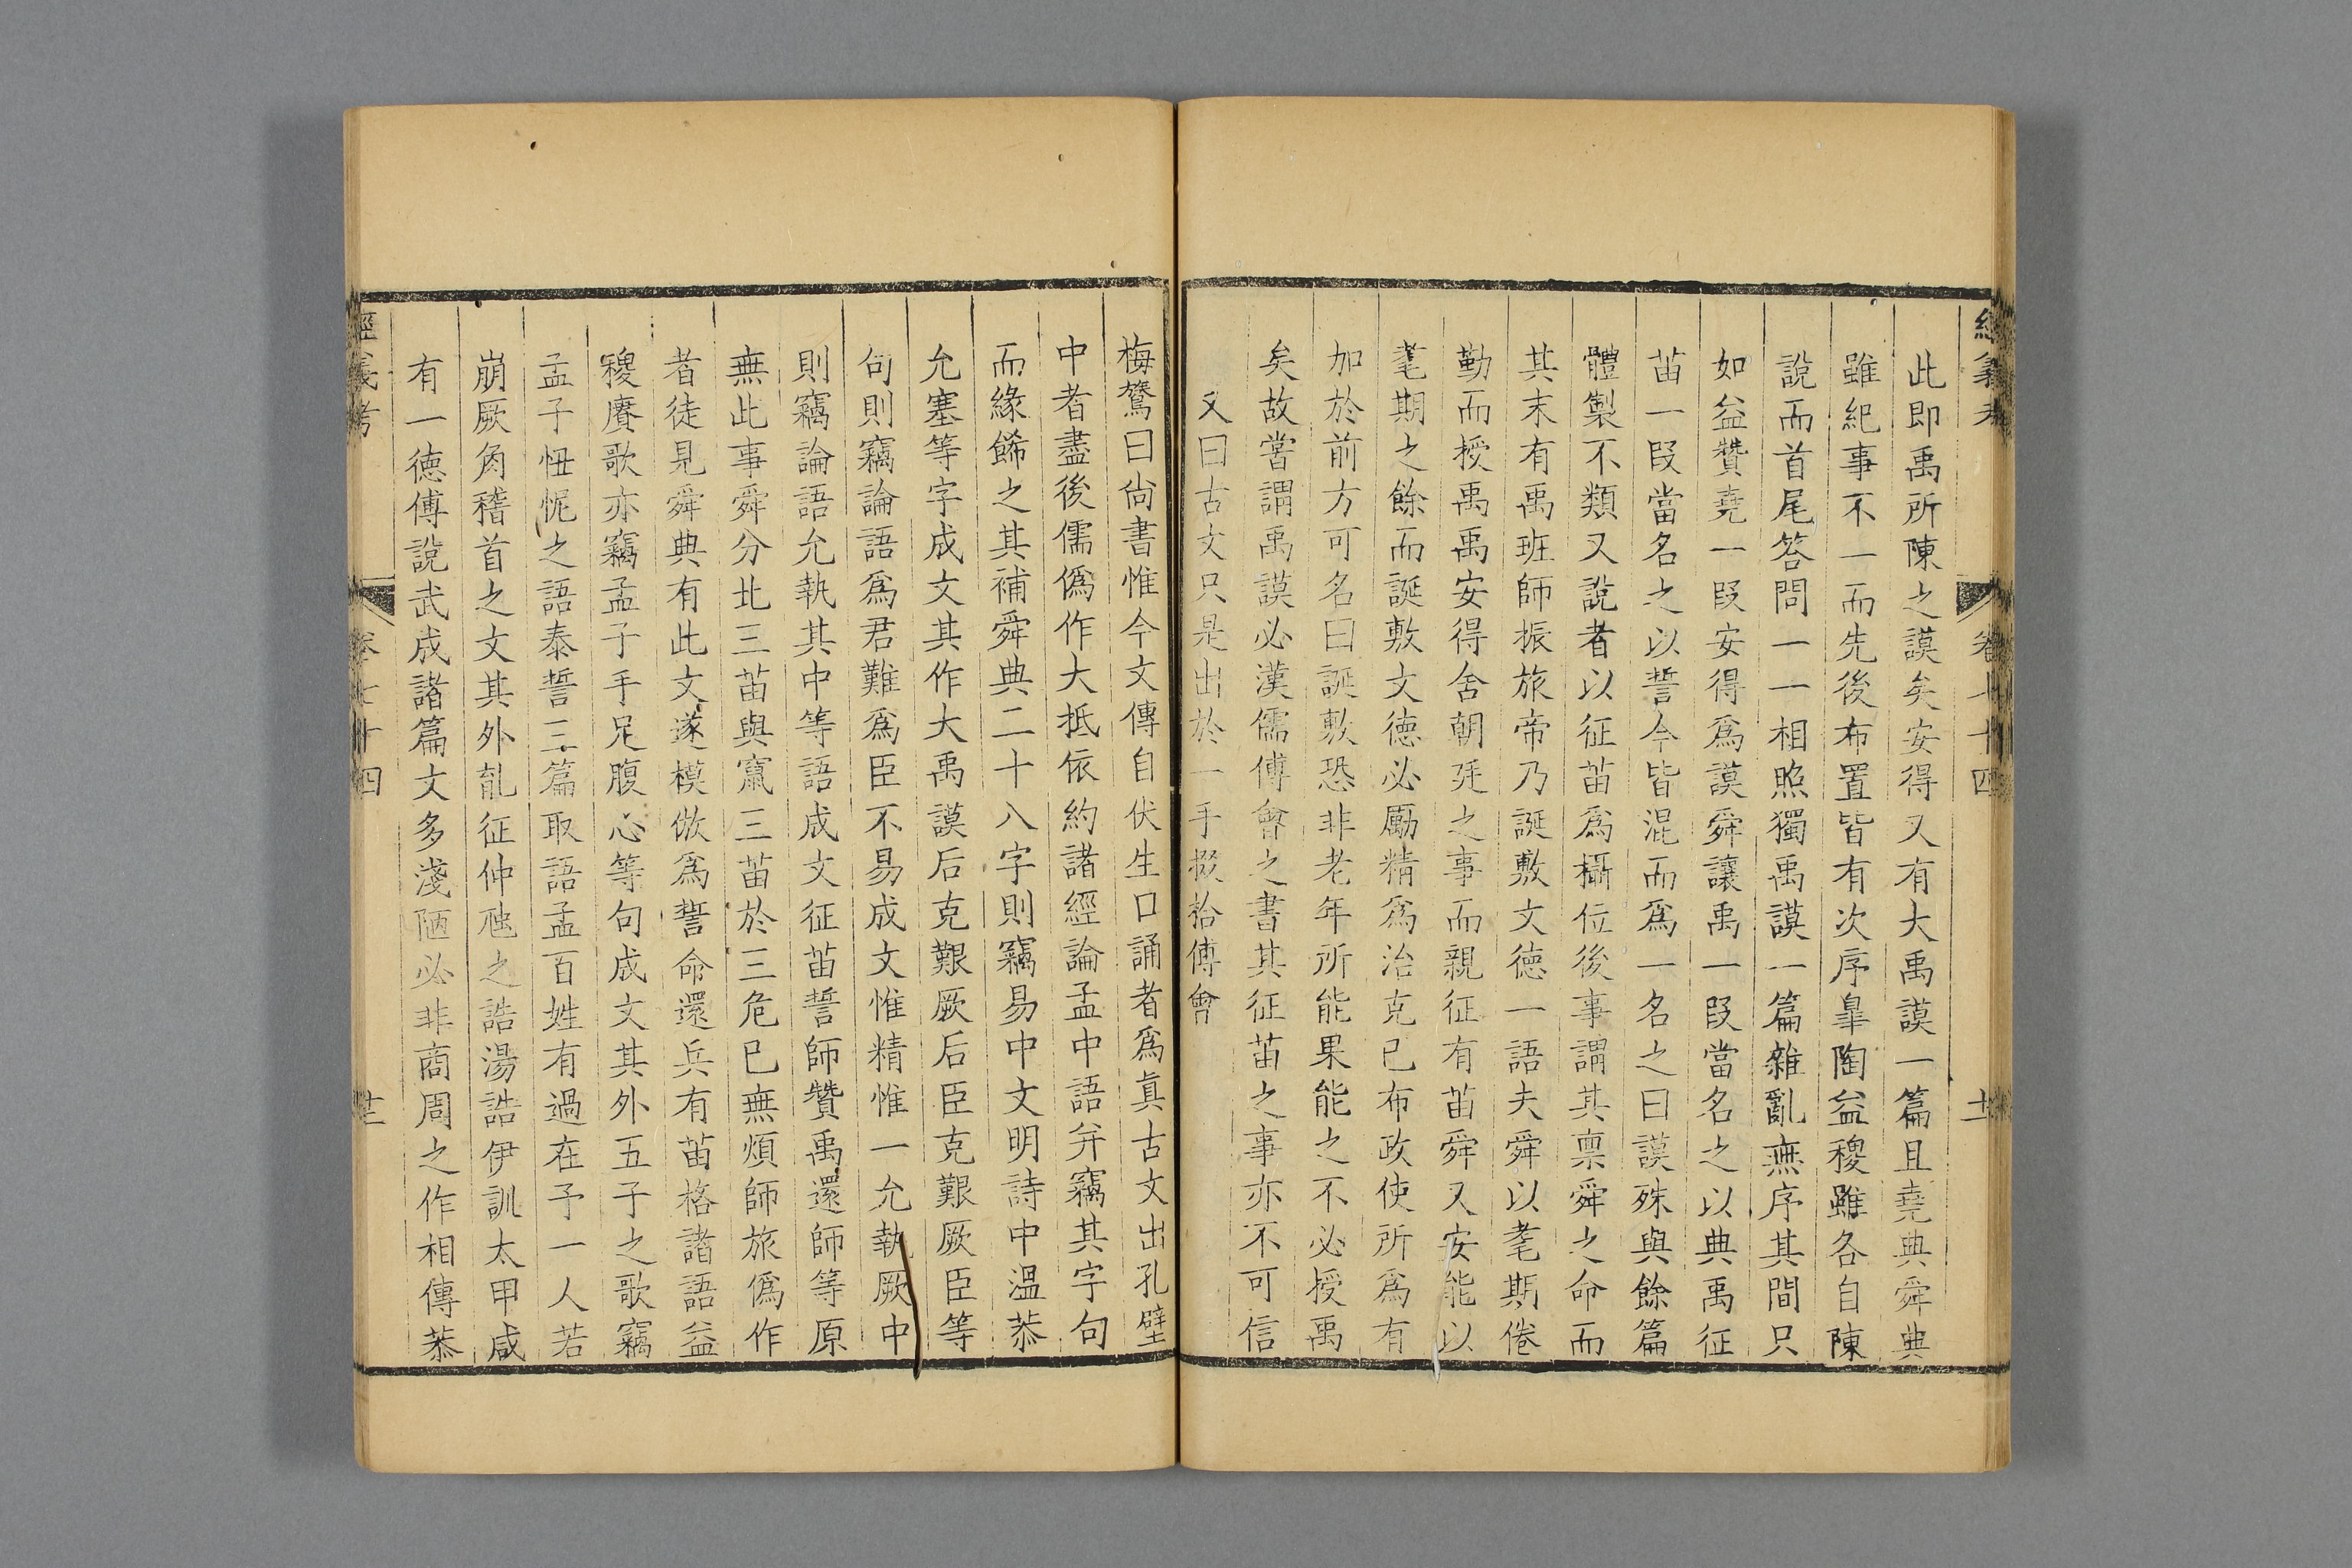 此即禹所陳之謨矣安得又有大禹謨一篇且堯典舜典
雖紀事不一而先後布置皆有次序臯陶益稷雖各自陳
說而首尾答問一一相照獨禹謨一篇雜亂無序其間只
如益贊堯一段安得爲謨舜讓禹一段當名之以典禹征
苗一段當名之以誓今皆混而爲一名之曰謨殊與餘篇
體製不類又說者以征苗爲攝位後事謂其禀舜之命而
其末有禹班師振旅帝乃誕敷文德一語夫舜以耄期倦
勤而授禹禹安得舍朝廷之事而親征有苗舜又安能以
耄期之餘而誕敷文德必勵精爲治克已布政使所爲有
加於前方可名曰誕敷恐非老年所能果能之不必授禹
矣故嘗謂禹謨必漢儒傅會之書其征苗之事亦不可信
又曰古文只是出於一手掇拾傅會
梅鷟曰尙書惟今文傳自伏生口誦者爲眞古文出孔壁
中者盡後儒僞作大抵依約諸經論孟中語并竊其字句
而緣餙之其補舜典二十八字則竊易中文明詩中溫恭
允塞等字成文其作大禹謨后克艱厥后臣克艱厥臣等
句則竊論語爲君難爲臣不易成文惟精惟一允執厥中
則竊論語允執其中等語成文征苗誓師贊禹還師等原
無此事舜分北三苗與竄三苗於三危已無煩師旅僞作
者徒見舜典有此文遂模倣爲誓命還兵有苗格諸語益
稷賡歌亦竊孟子手足腹心等句成文其外五子之歌竊
孟子忸怩之語泰誓三篇取語孟百姓有過在予一人若
崩厥角稽首之文其外亂征仲虺之誥湯誥伊訓太甲咸
有一德傅說武成諸篇文多淺陋必非商周之作相傳恭
經義考
卷七十四